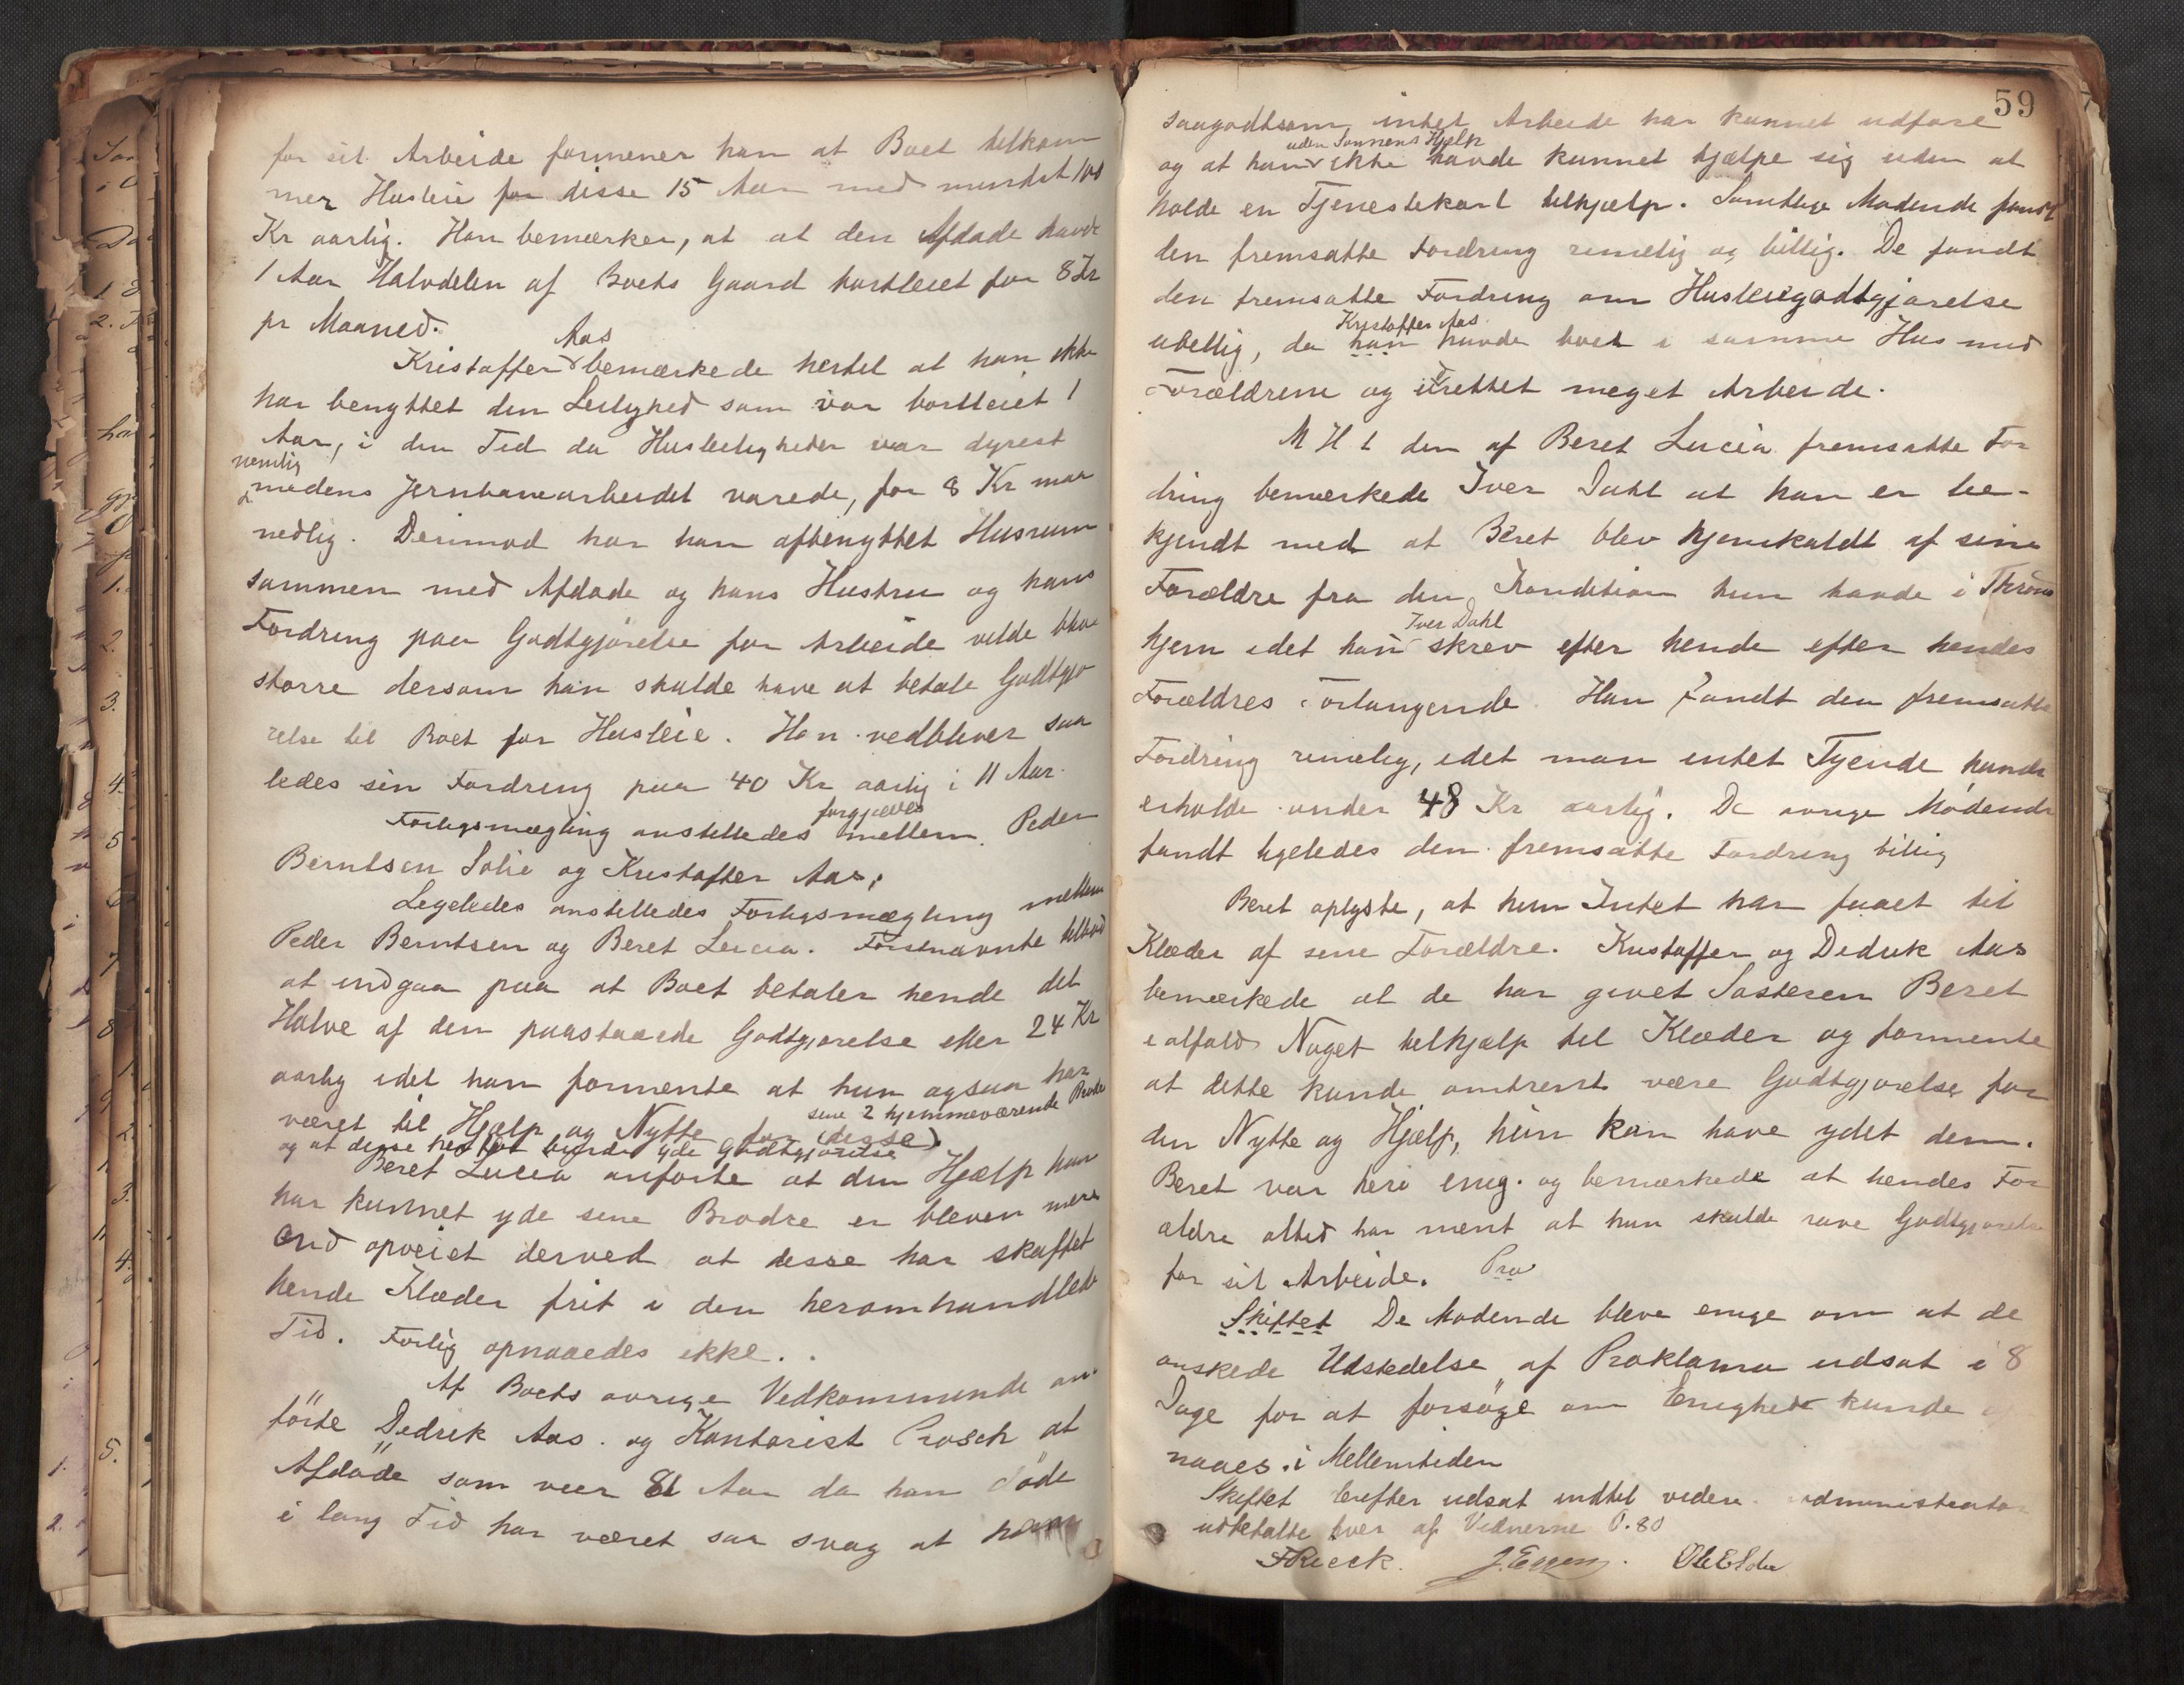 for sit Arbeide formener han at Boet tilkom
mer Husleie for disse 15 Aar med mindst 100
Kr aarlig. Han bemærker, at at den Afdøde havde
1 Aar Halvdelen af Boets Gaard bortleiet for 8 Kr
pr Maaned.
Aas
Kristoffer bemærkede hertil at han ikke
har benyttet den Leilighed som var bortleiet 1
Aar, i den Tid da Husleiligheder var dyrest
nemlig
medens Jernbanearbeidet varede, for 8 Kr maa
nedlig. Derimod har han afbenyttet Husrum
sammen med Afdøde og hans Hustru og hans
Fordring paa Godtgjørelse for Arbeide vilde blive
større dersom han skulde have at betale Godtgjø
relse til Boet for Husleie. Han vedbliver saa
ledes sin Fordring paa 40 Kr aarlig i 11 Aar.
forgjæves
Forligsmægling anstilledes mellem Peder
Berntsen Solie og Kristoffer Aas.
Ligeledes anstilledes Forligsmægling mellem
Peder Berntsen og Beret Lucia. Førstnævnte tilbød
at indgaa paa at Boet betaler hende det
Halve af den paastaaede Godtgjørelse eller 24 Kr
aarlig idet han formente at hun ogsaa har
sine 2 hjemmeværende Brødre
været til Hjælp og Nytte for (disse)
og at disse herfor burde yde Godtgjørelse
Beret Lucia anførte at den Hjælp hun
har kunnet yde sine Brødre er bleven mere
end opveiet derved at disse har skaffet
hende Klæder frit i den heromhandlede
Tid. Forlig opnaaedes ikke.
Af Boets øvrige Vedkommende an
førte Dedrik Aas og Kontorist Prosch at
Afdøde som var 81 Aar da han døde
i lang Tid har været saa svag at han
59
saagodtsom intet Arbeide har kunnet udføre
uden Sønnens Hjælp
og at han ikke havde kunnet hjælpe sig uden at
holde en Tjenestekarl tilhjælp. Samtlige Mødende fandt
den fremsatte Fordring rimelig og billig. De fandt
den fremsatte Fordring om Husleiegodtgjørelse
Kristoffer Aas
ubillig, da han havde boet i samme Hus med
Forældrene og udrettet meget Arbeide.
M H t den af Beret Lucia fremsatte For
dring bemærkede Iver Dahl at han er be-
kjendt med at Beret blev hjemkaldt af sine
Forældre fra den Kondition hun havde i Thrond
Iver Dahl
hjem idet han skrev efter hende efter hendes
Forældres Forlangende. Han fandt den fremsatte
Fordring rimelig, idet man intet Tyende kunde
erholde under 48 Kr aarlig. De øvrige Mødende
fandt ligeledes den fremsatte Fordring billig
Beret oplyste, at hun Intet har faaet til
Klæder af sine Forældre. Kristoffer og Dedrik Aas
bemærkede at de har givet Søsteren Beret
ialfald Noget tilhjælp til Klæder og formente
at dette kunde omtrent være Godtgjørelse for
den Nytte og Hjælp, hun kan have ydet dem.
Beret var heri enig og bemærkede at hendes For
ældre altid har ment at hun skulde have Godtgjørelse
for sit Arbeide. Pro
Skiftet De Mødende bleve enige om at de
ønskede Udstedelse af Proklama udsat i 8
Dage for at forsøge om Enighed kunde op
naaes i Mellemtiden
Skiftet derefter udsat indtil videre. Administrator
udbetalte hver af Vidnerne 0.80
FRieck. J. Eggen. Ole